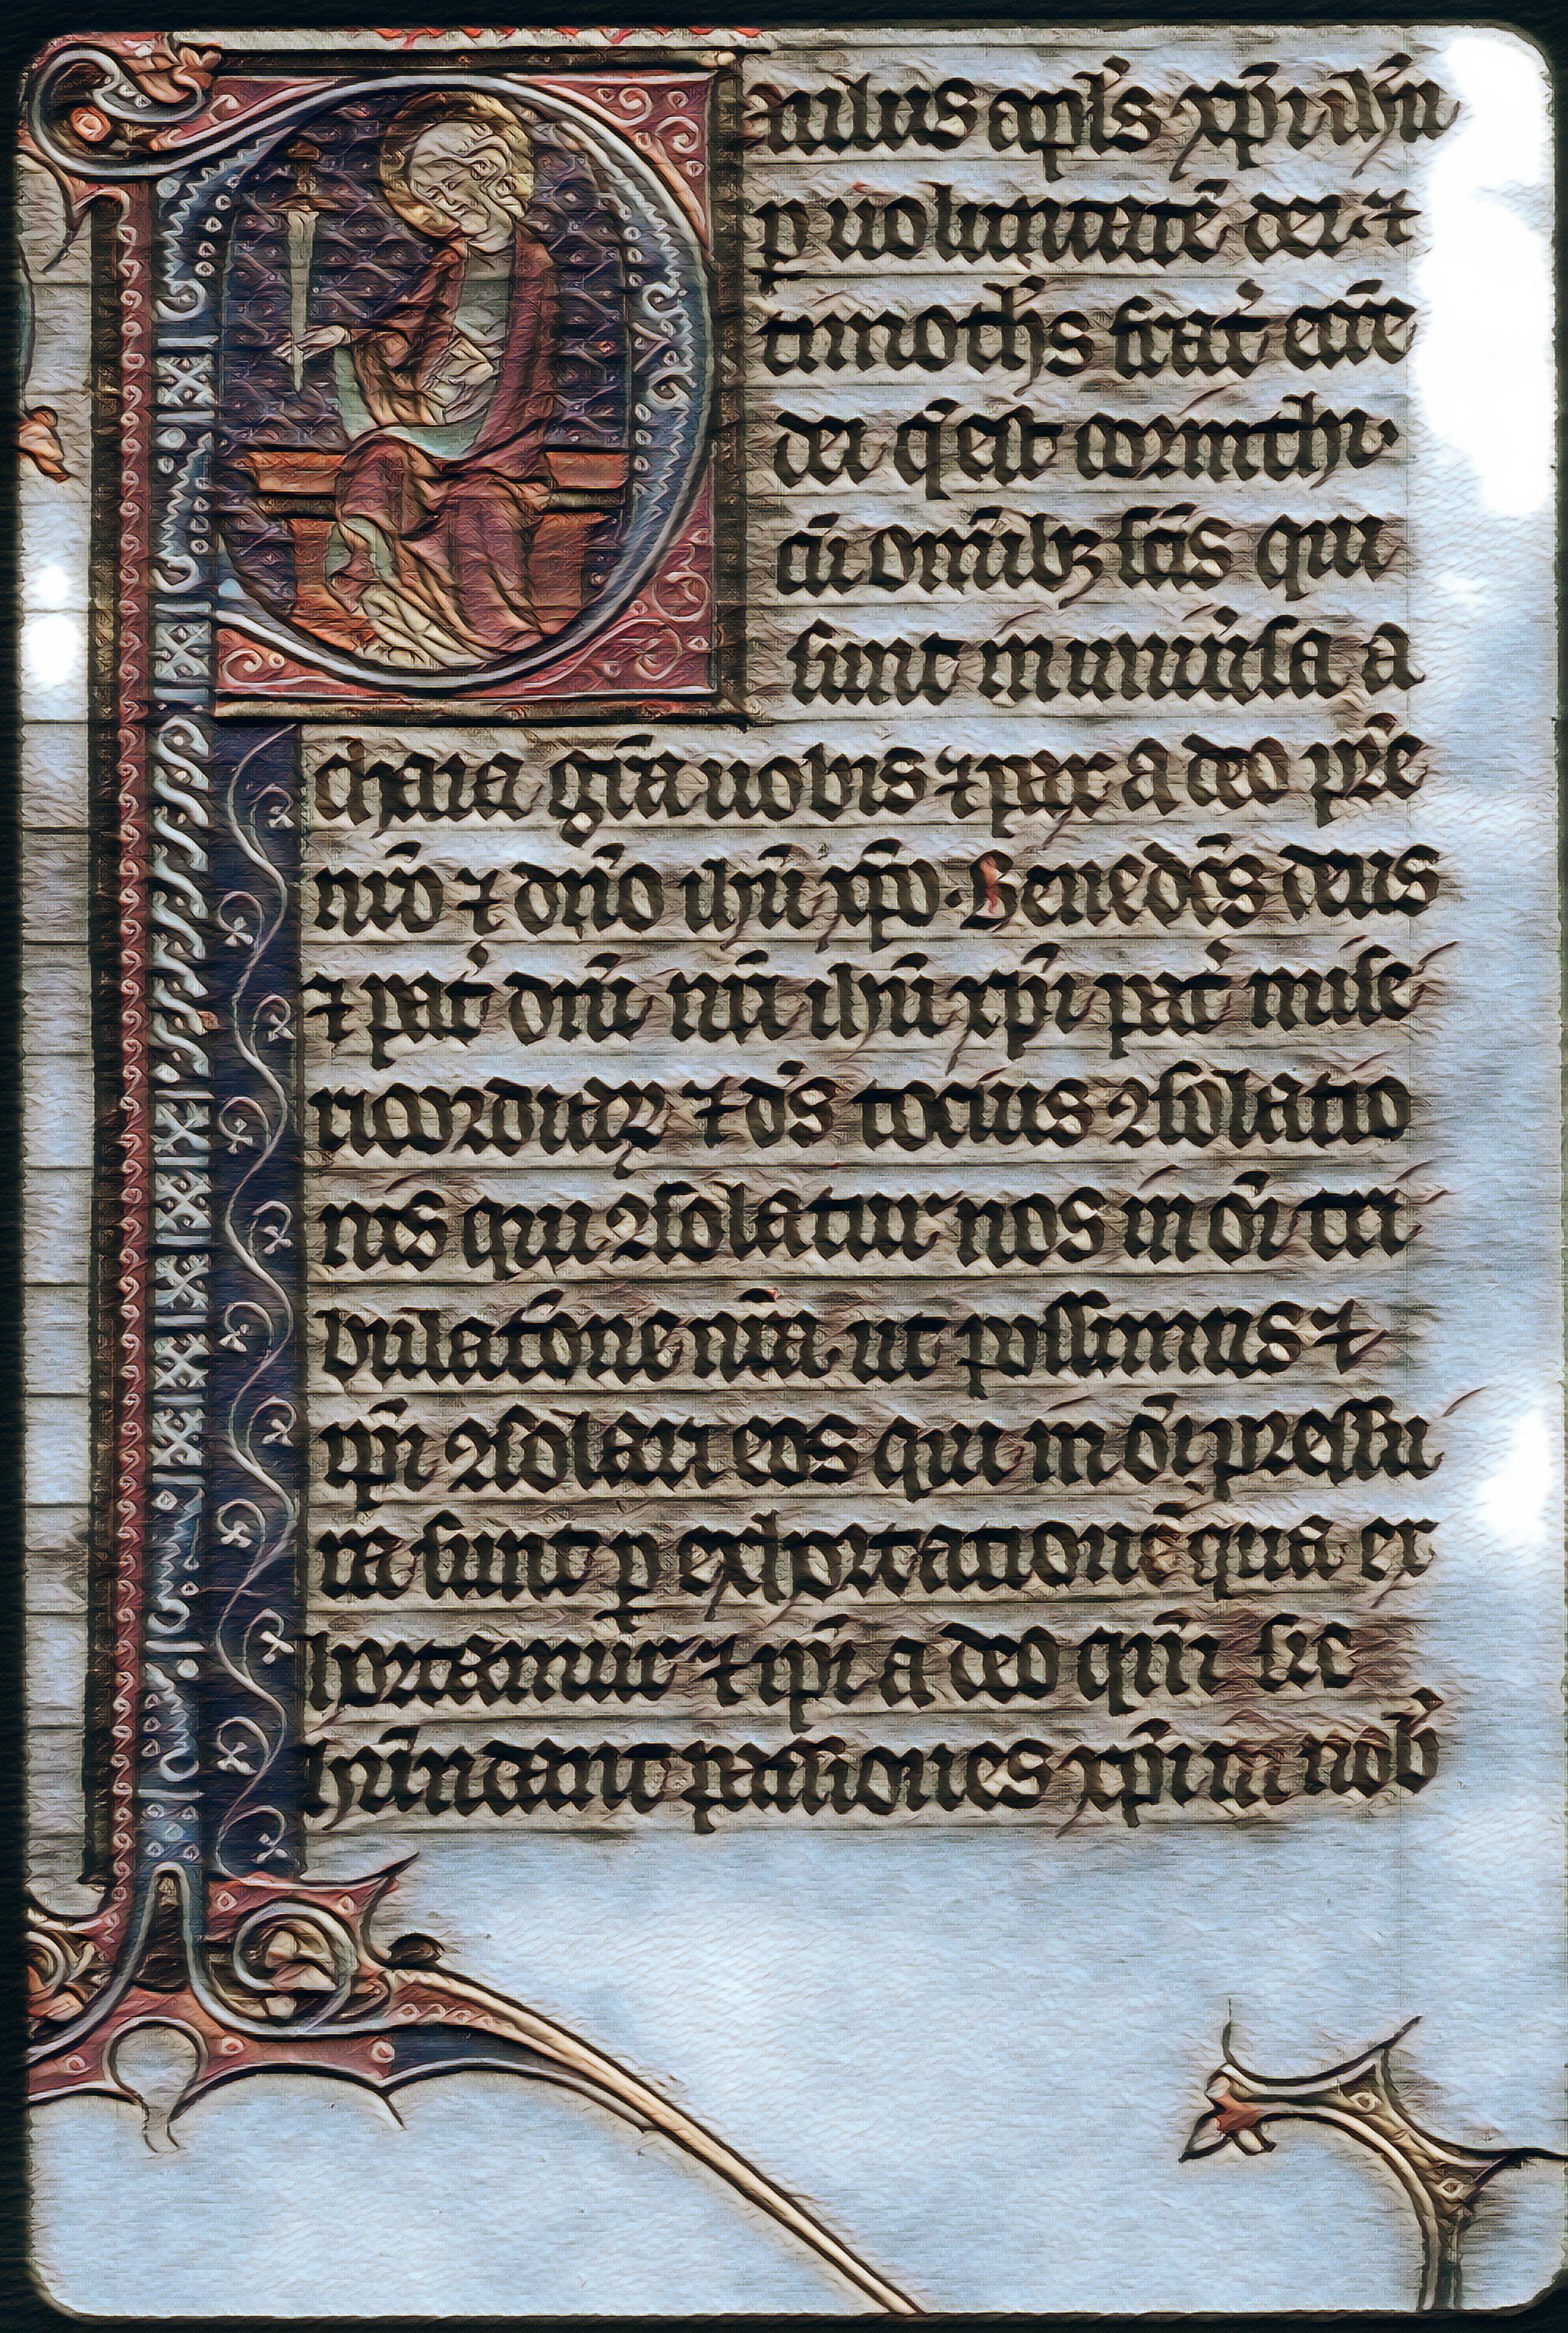 Paulus apl̃s xp̃i ih̃u
ꝑ uoluntatẽ dei ⁊
timoth̾s frat̾ ecc̃e
dei q̃ est corinthi
cũ omĩbꝫ sc̃is qui
sunt in uniũsa a
chaia gr̃a uobis ⁊ pax a deo pr̃e
nr̃o ⁊ dño ih̃u xp̃o. Benedc̃s deus
⁊ pat̾ dñi nr̃i ih̃u xp̃i pat̾ mise
ricordiaꝝ ⁊ ds̃ tocius ꝯsolatio
nis qui ꝯsolatur nos in õi tri
bulatõne nr̃a ut possimus ⁊
ip̃i ꝯsolari eos qui in õi pressu
ra sunt ꝑ exhortationẽ qua ex
hortamur ⁊ ip̃i a deo qm̃ sic
hũndant passiones xp̃i in nob̾